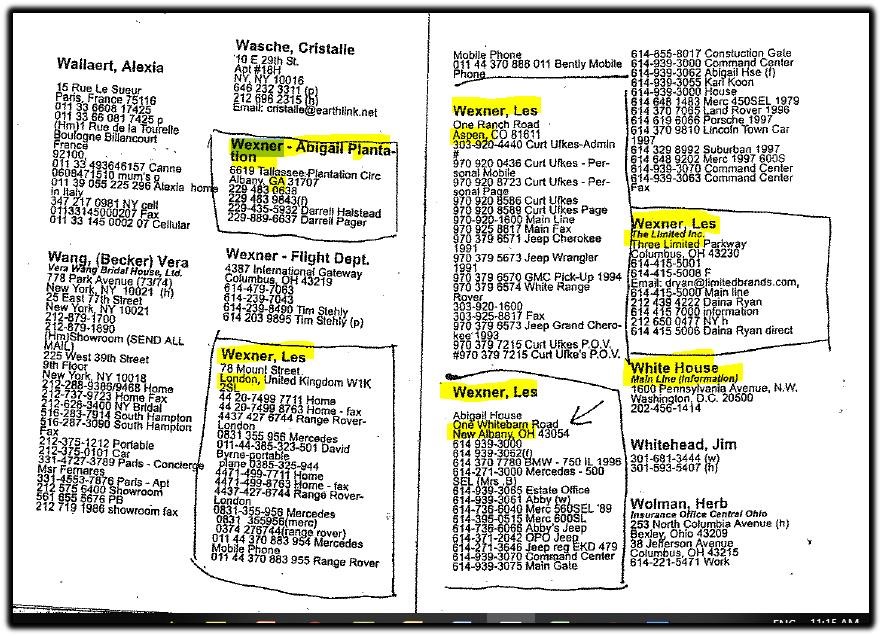 Wallaert, Alexia
15 Rue Le Sueur
Paris, France 75116
011 33 6608 17425
011 33 66 081 7425 p
(Hm)1 Rue de la Tourelle
Boulogne Billancourt
France
92100
011 33 493646157 Canne
0608471510 mum's g
011 39 055 225 296 Alexia home
in Italy
347 217 0981 NY cell
01133145000207 Fax
011 33 145 0002 07 Cellular
Wang, (Becker) Vera
Vera Wang Bridal House, Ltd.
778 Park Avenue (73/74)
New York, NY 10021 (h)
25 East 77th Street
New York, NY 10021
212-879-1700
212-879-1890
(Hm)Showroom (SEND ALL
MAIL)
225 West 39th Street
9th Floor
New York, NY 10018
212-288-9386/9468 Home
212-737-9723 Home Fax
212-628-3400 NY Bridal
516-283-7914 South Hampton
516-287-3090 South Hampton
Fax
212-375-1212 Portable
212-375-0101 Car
331-4727-3789 Paris - Concierge
Msr Fernares
331-4553-7876 Paris - Apt
212 575 6400 Showroom
561 655 5676 PB
212 719 1986 showroom fax
Wasche, Cristalle
10 E 29th St.
Apt #18H
NY, NY 10016
646 232 3311 (p)
212 696 2315 (h)
Email: cristalle@earthlink.net
Wexner - Abigail Planta-
tion
6619 Tallassee Plantation Circ
Albany, GA 31707
229 483 0638
229 483 9843(f)
229-435-5932 Darrell Halstead
229-889-6637 Darrell Pager
Wexner - Flight Dept.
4387 International Gateway
Columbus, OH 43219
614-479-7063
614-239-7043
614-239-8490 Tim Stehly
614 203 9895 Tim Stehly (p)
Wexner, Les
78 Mount Street
London, United Kingdom W1K
2SL
44 20-7499 7711 Home
44 20-7499 8763 Home - fax
4437 427 6744 Range Rover-
London
0831 355 956 Mercedes
011-44-385-323-501 David
Byrne-portable
plane 0385-325-944
4471-499-7711 Home
4471-499-8763 Home - fax
4437-427-6744 Range Rover-
London
0831-355-956 Mercedes
0831 355956(merc)
0374 276744(range rover)
011 44 370 883 954 Mercedes
Mobile Phone
011 44 370 883 955 Range Rover
Mobile Phone
011 44 370 886 011 Bently Mobile
Phone
Wexner, Les
One Ranch Road
Aspen, CO 81611
303-920-4440 Curt Ufkes-Admin
#
970 920 0436 Curt Ufkes - Per-
sonal Mobile
970 920 8723 Curt Ufkes - Per-
sonal Page
970 920 8586 Curt Ufkes
970 920 8589 Curt Ufkes Page
970-920-1600 Main Line
970 925 8817 Main Fax
970 379 6571 Jeep Cherokee
1991
970 379 5673 Jeep Wrangler
1991
970 379 6570 GMC Pick-Up 1994
970 379 6574 White Range
Rover
303-920-1600
303-925-8817 Fax
970 379 6573 Jeep Grand Chero-
kee 1993
970 379 7215 Curt Ufkes P.O.V.
#970 379 7215 Curt Ufke's P.O.V.
Wexner, Les
Abigail House
One Whitebarn Road
New Albany, OH 43054
614 939-3000
614 939-3062(f)
614 370 7780 BMW - 750 IL 1996
614-271-3000 Mercedes - 500
SEL (Mrs .B)
614-939-3065 Estate Office
614-939-3061 Abby (w)
614-736-6040 Merc 560SEL '89
614-395-0515 Merc 600SL
614-736-6066 Abby's Jeep
614-371-2042 OPO Jeep
614-271-3646 Jeep reg EKD 479
614-939-3070 Command Center
614-939-3075 Main Gate
614-855-8017 Constuction Gate
614-939-3000 Command Center
614-939-3062 Abigail Hse (f)
614-939-3055 Karl Koon
614-939-3000 House
614 648 1483 Merc 450SEL 1979
614 370 7065 Land Rover 1996
614 619 6066 Porsche 1997
614 370 9810 Lincoln Town Car
1997
614 329 8992 Suburban 1997
614 648 9202 Merc 1997 600S
614-939-3070 Command Center
614-939-3063 Command Center
Fax
Wexner, Les
The Limited Inc.
Three Limited Parkway
Columbus, OH 43230
614-415-5001
614-415-5008 F
Email: dryan@limitedbrands.com,
614-415-5000 Main line
212 439 4222 Daina Ryan
614 415 7000 information
212 650 0477 NY h
614 415 5006 Daina Ryan direct
White House
Main Line (Information)
1600 Pennsylvania Avenue, N.W.
Washington, D.C. 20500
202-456-1414
Whitehead, Jim
301-681-3444 (w)
301-593-5407 (h)
Wolman, Herb
Insurance Office Central Ohio
253 North Columbia Avenue (h)
Bexley, Ohio 43209
38 Jefferson Avenue
Columbus, OH 43215
614-221-5471 Work